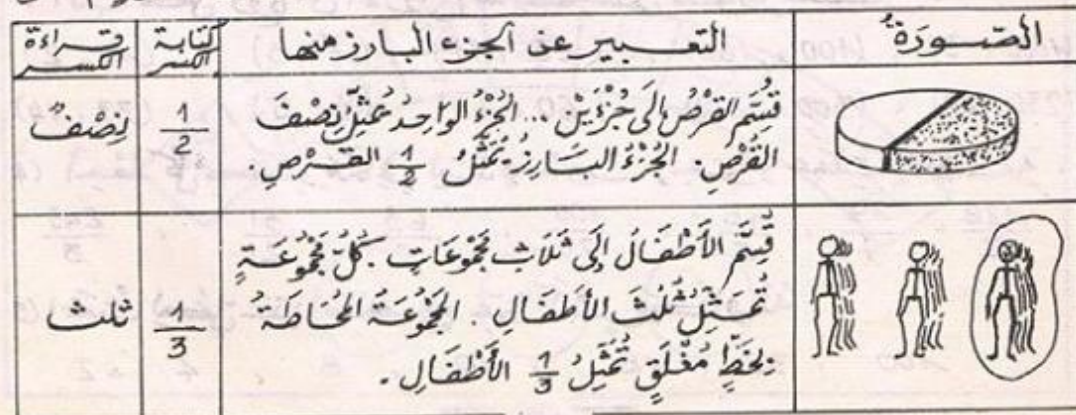 الصّورَةُ
التعبير عن الجزء البارز منها
كتابة الكسر
قراءة الكسر
قُسِّمَ القرْصُ إلَى جُزْءَيْنِ... الجُزْءُ الوَاحِدُ يُمَثِّلُ نِصْفَ
القُرْصِ. الجُزْءُ البَارِزُ يُمَثِّلُ 1/2 القُرْصِ.
1/2
نِصْفٌ
قُسِّمَ الأَطْفَالُ إلَى ثَلَاثِ مَجْمُوعَاتٍ. كُلُّ مَجْمُوعَةٍ
تُمَثِّلُ ثُلُثَ الأَطْفَالِ. المَجْمُوعَةُ المُحَاطَةُ
بِخَطٍّ مُغْلَقٍ تُمَثِّلُ 1/3 الأَطْفَالِ.
1/3
ثلث